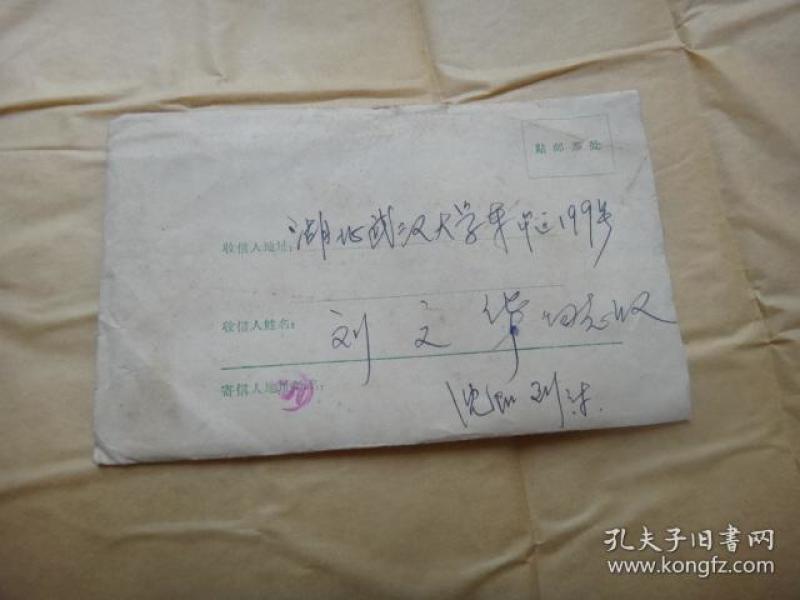 贴邮票处
收信人地址：湖北武汉大学 区199号
收信人姓名：刘文华同志收
寄信人地
沈阳刘
孔夫子旧书网
www.kongfz.com